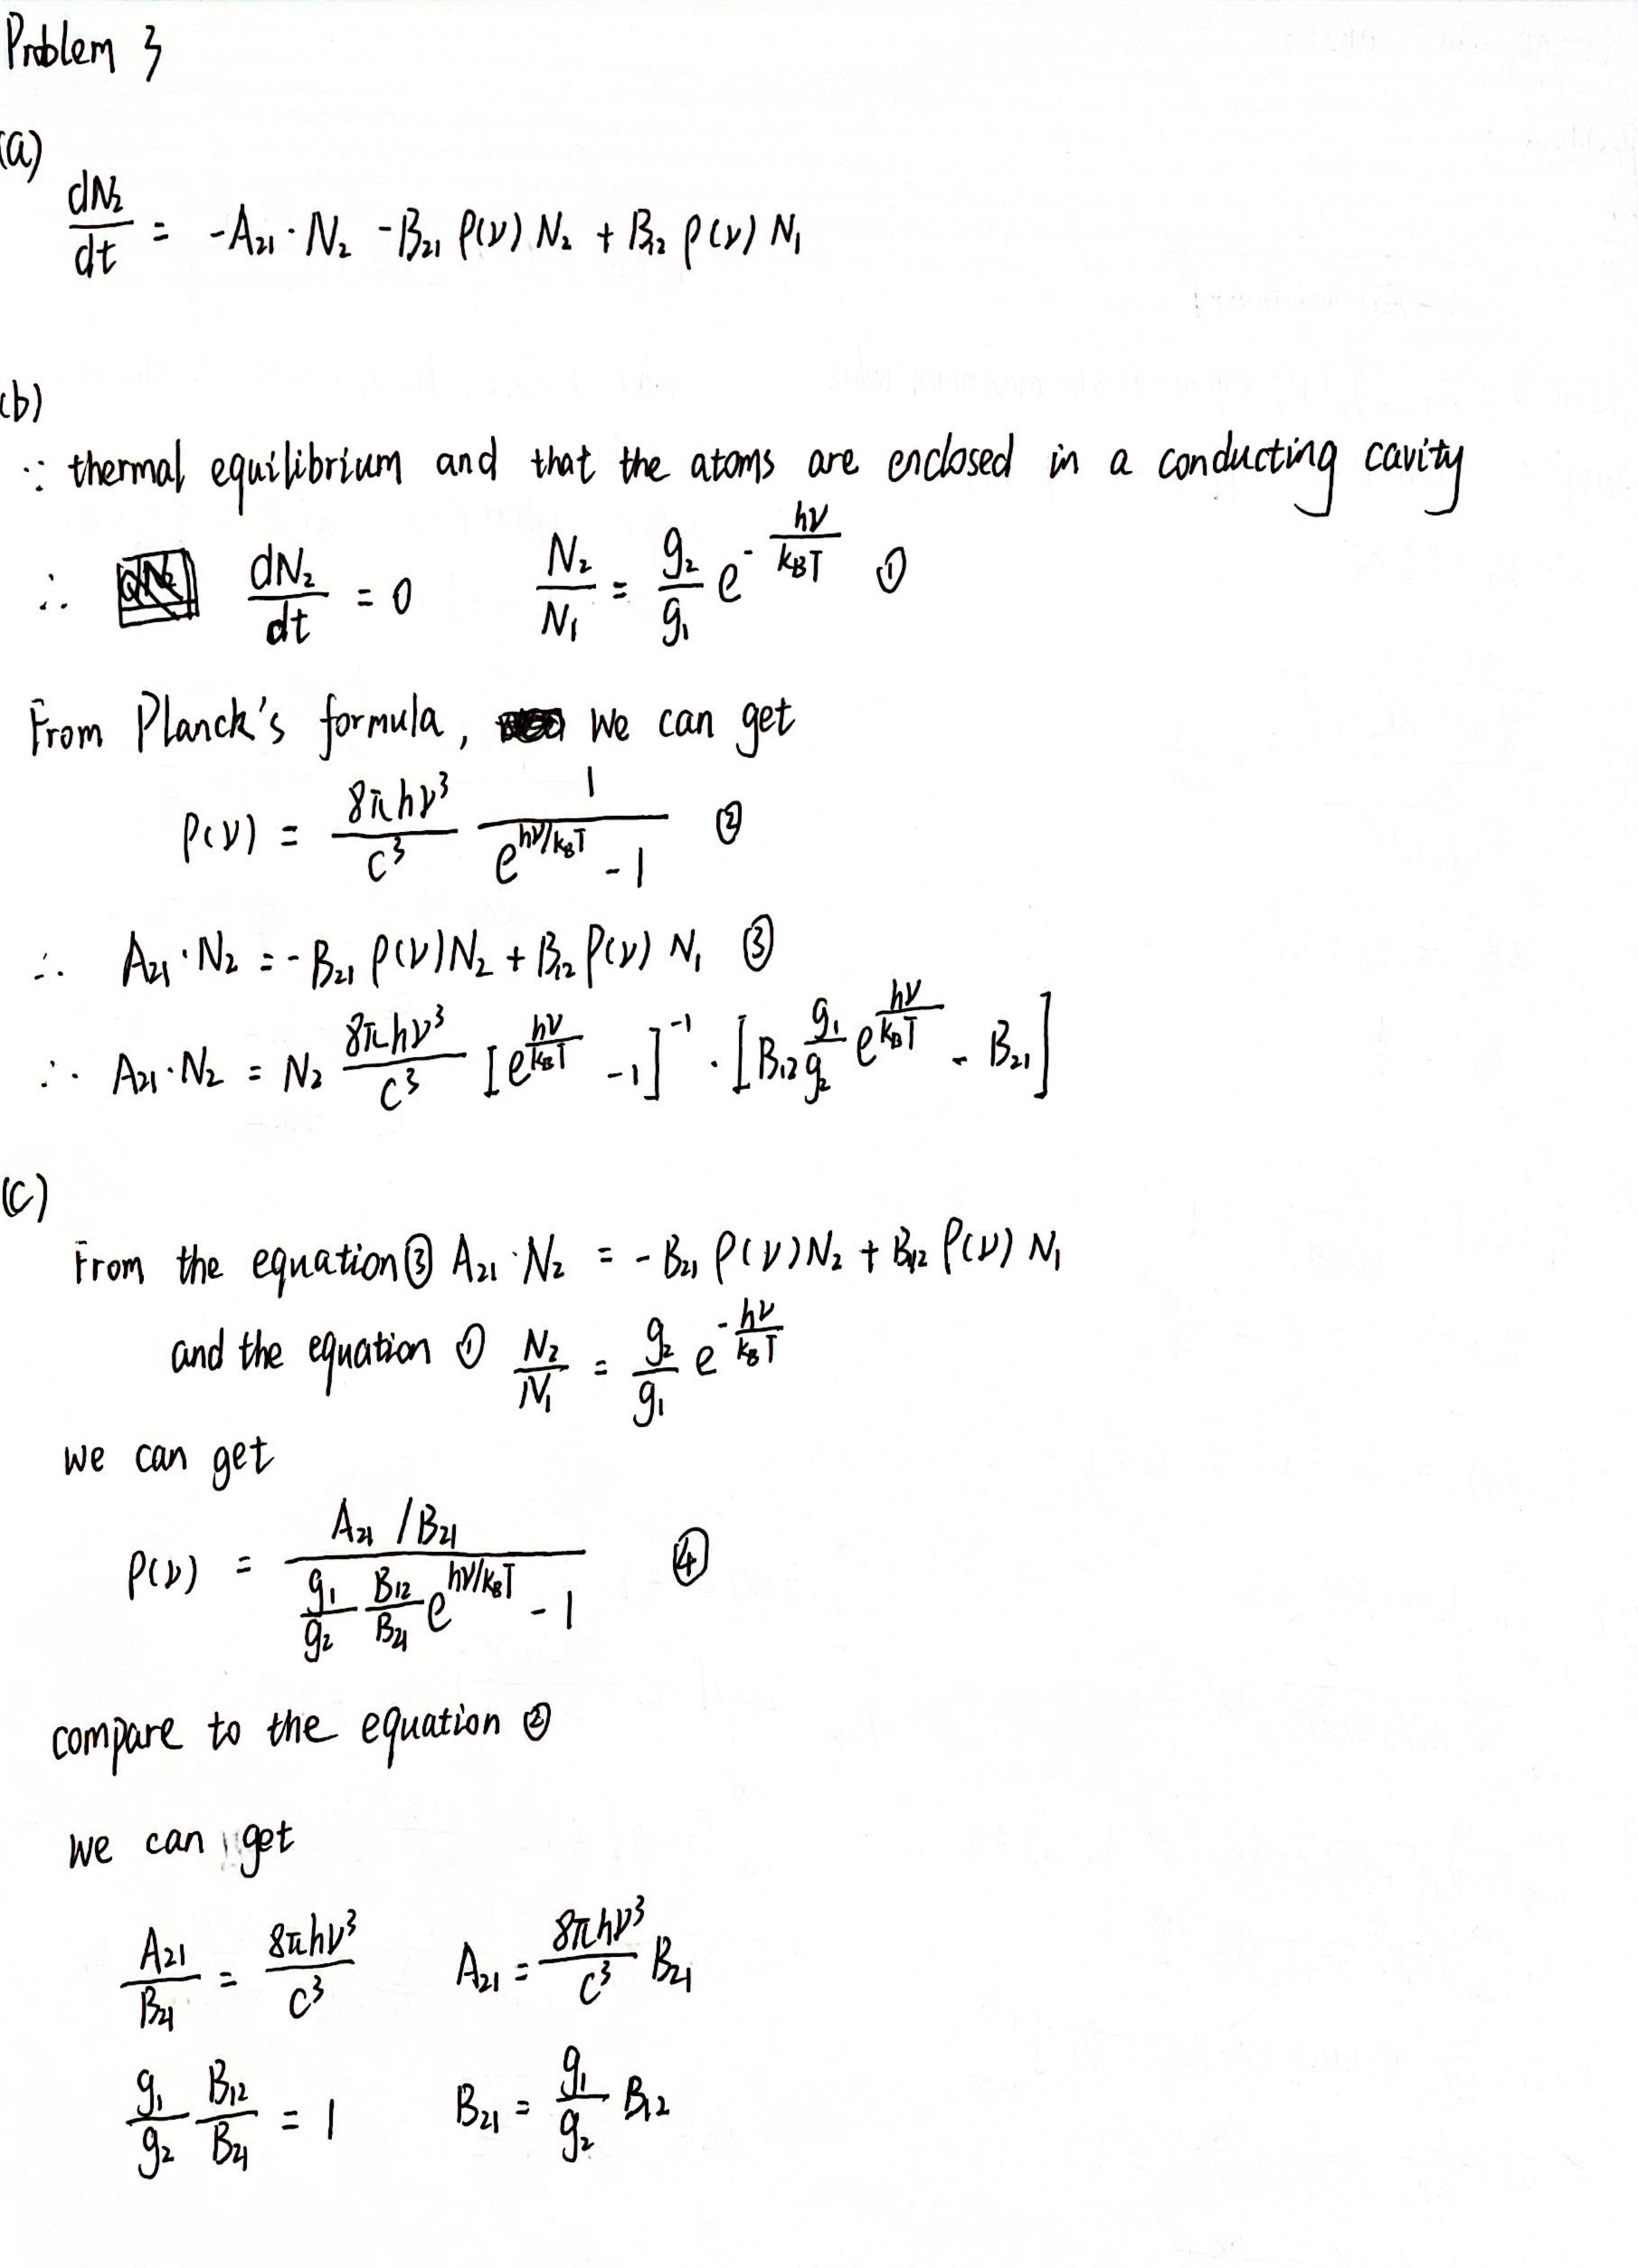 Problem 3
(a)
dN₂/dt = -A₂₁ · N₂ - B₂₁ ρ(ν) N₂ + B₁₂ ρ(ν) N₁
(b)
∵ thermal equilibrium and that the atoms are enclosed in a conducting cavity
∴ dN₂/dt = 0 N₂/N₁ = g₂/g₁ e^(-hν/k_BT) ①
From Planck's formula, we can get
ρ(ν) = 8πhν³/c³ 1/(e^(hν/k_BT) - 1) ②
∴ A₂₁ · N₂ = - B₂₁ ρ(ν) N₂ + B₁₂ ρ(ν) N₁ ③
∴ A₂₁ · N₂ = N₂ 8πhν³/c³ [e^(hν/k_BT) - 1]⁻¹ · [B₁₂ g₁/g₂ e^(hν/k_BT) - B₂₁]
(c)
From the equation ③ A₂₁ · N₂ = - B₂₁ ρ(ν) N₂ + B₁₂ ρ(ν) N₁
and the equation ① N₂/N₁ = g₂/g₁ e^(-hν/k_BT)
we can get
ρ(ν) = (A₂₁ / B₂₁)/(g₁/g₂ B₁₂/B₂₁ e^(hν/k_BT) - 1) ④
compare to the equation ②
we can get
A₂₁/B₂₁ = 8πhν³/c³ A₂₁ = 8πhν³/c³ B₂₁
g₁/g₂ B₁₂/B₂₁ = 1 B₂₁ = g₁/g₂ B₁₂